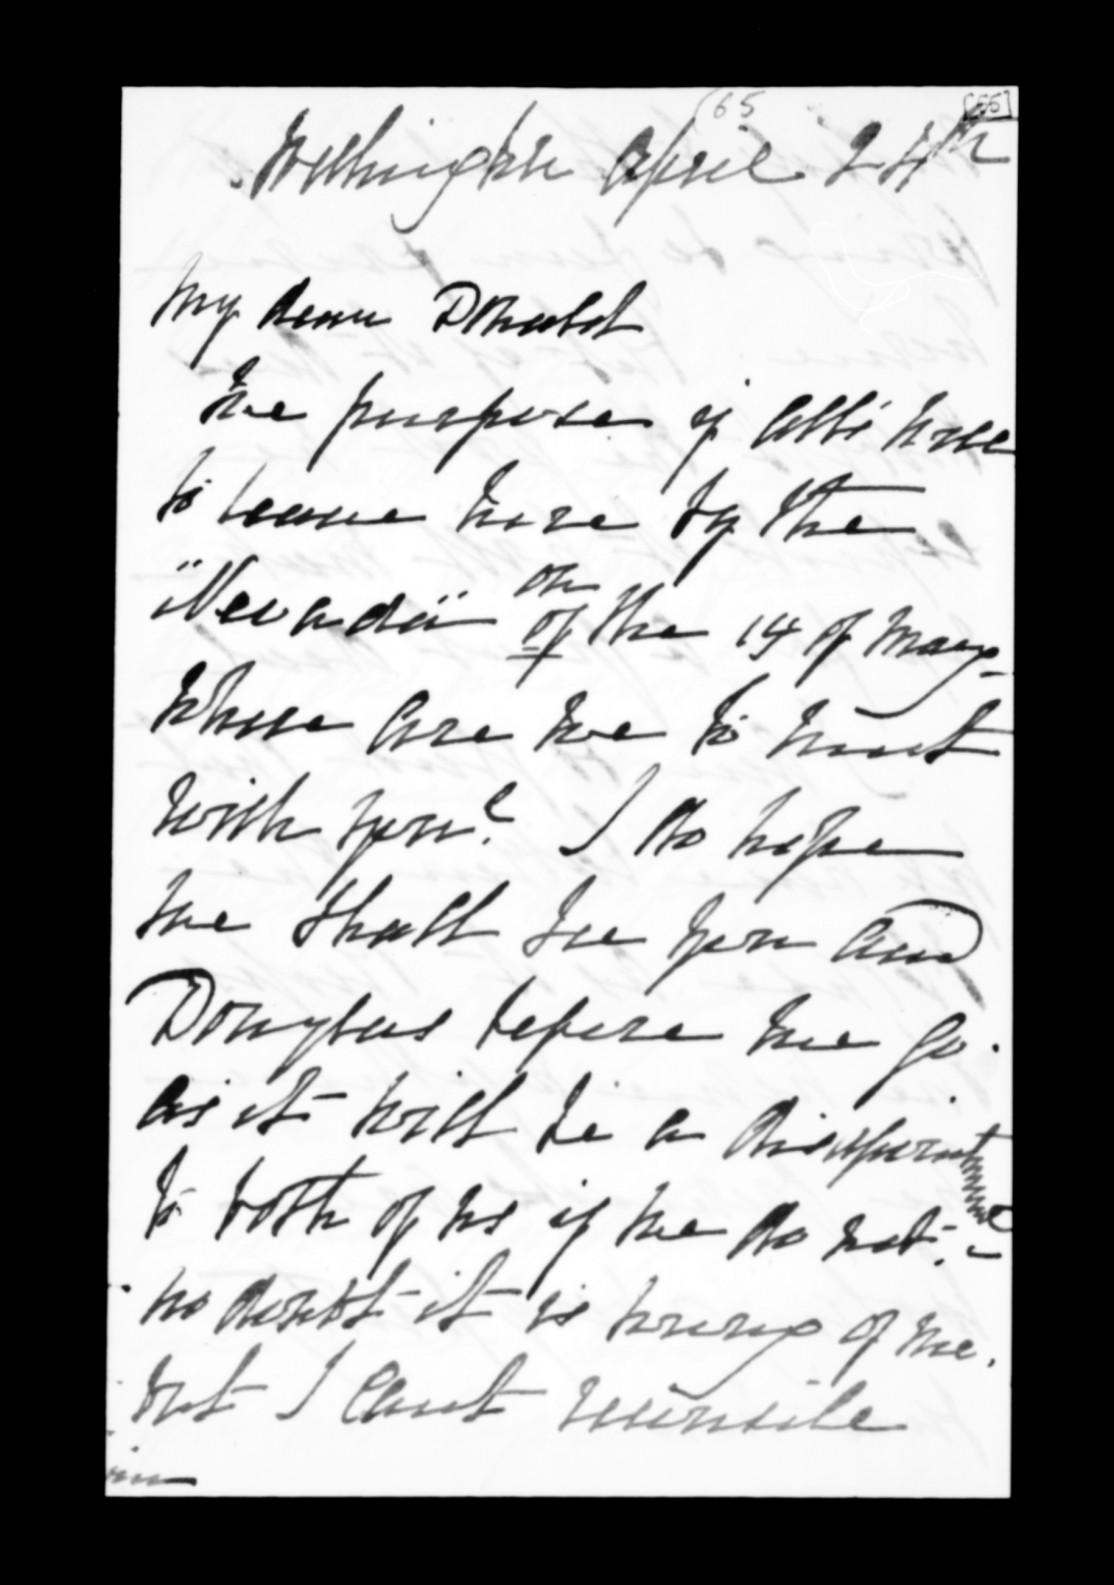 (65 [55]
Wellington April 24th
My dear Donald
We purpose if all's well
to leave here by the
"Nevada" on
of the 14 of May.
where are we to meet
with you? I do hope
we shall see you and
Douglas before we go.
as it will be a disapointment
to both of us if we do not. -
no doubt it is wrong of me.
but I cant reconcile